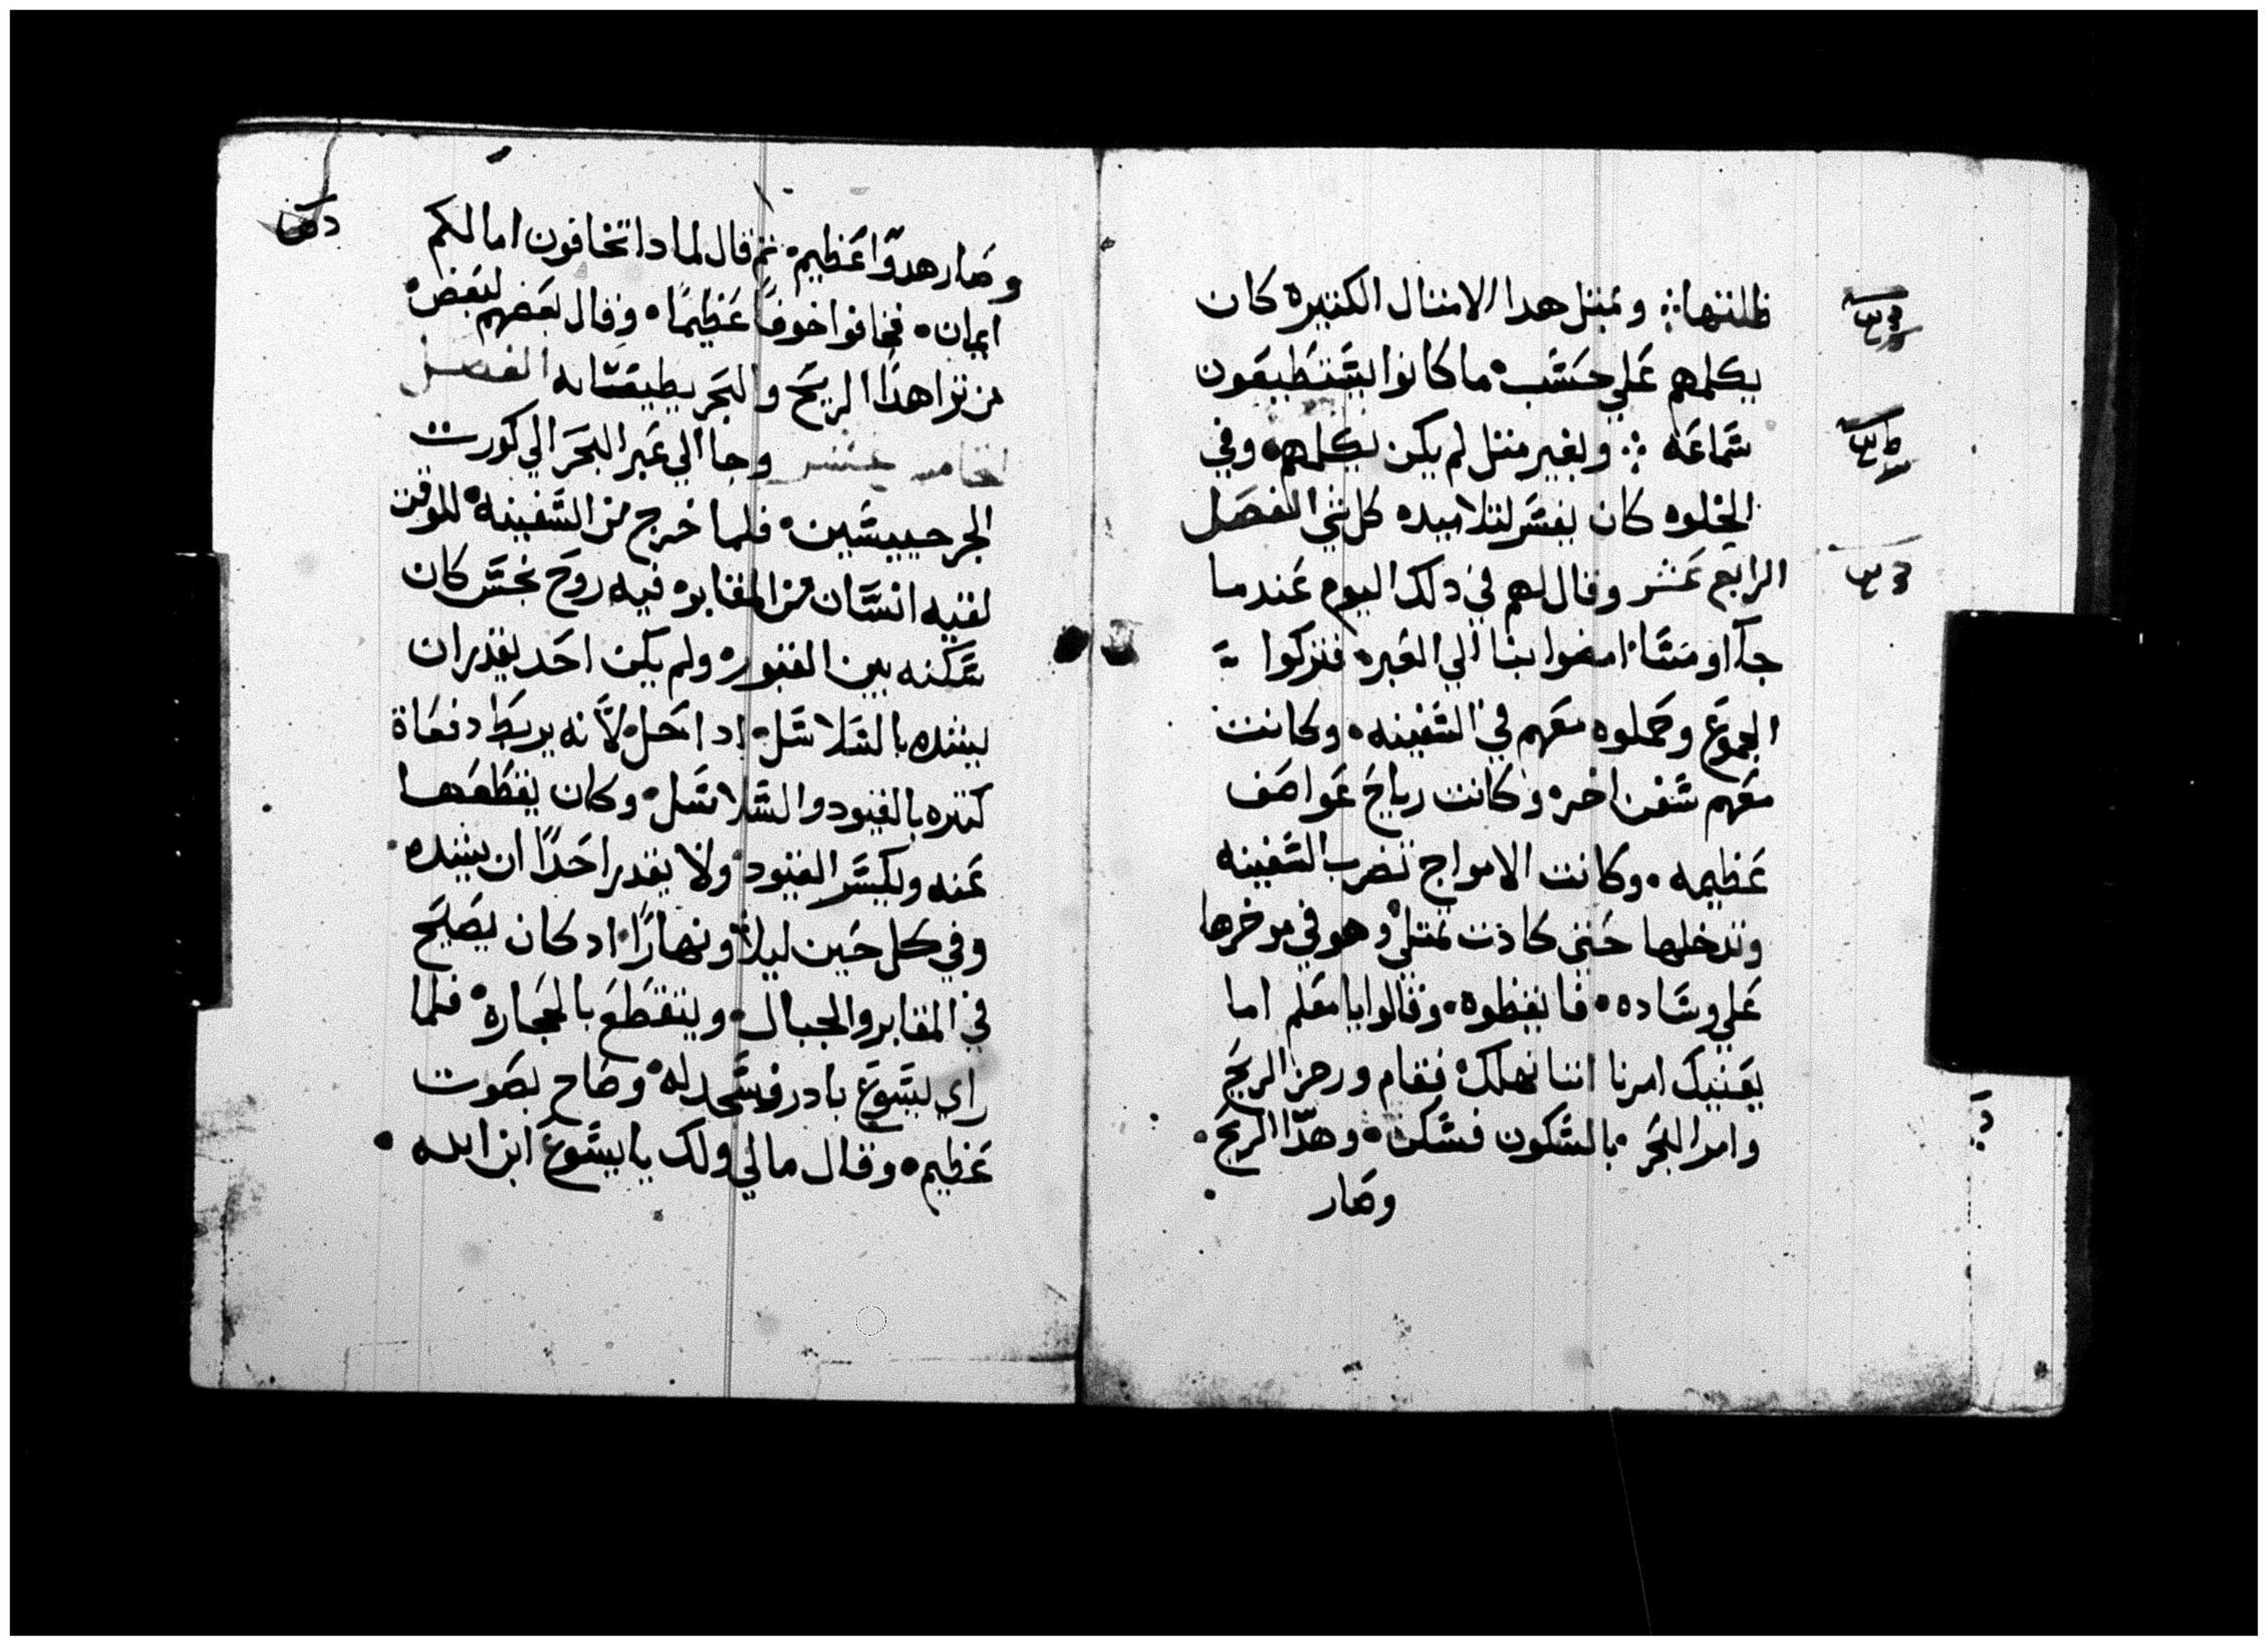 ظلتها ܀ وبمثل هدا الامثال الكثيره كان
يكلمهم علي حسب ما كانوا يستطيعون
سماعه ܀ وبغير مثل لم يكن يكلمهم وفي
الخلوه كان يفسر لتلاميده كل شي الفصل
الرابع عشر وقال لهم في دلك اليوم عندما
جآ او مسا امضوا بنا الي العبره فتركوا
الجموع وحملوه معهم في السفينه وكانت
معهم سفن اخره وكانت رياح عواصف
عظيمه وكانت الامواج تضرب السفينه
وتدخلها حتي كادت تمتلي وهو في موخرها
علي وساده فايقظوه وقالوا يا معلم اما
يعنيك امرنا اننا نهلك فقام وزجر الريح
وامر البحر بالسكون فسكن وهدّا الريح
وصار
وصار هدوّا عظيم ثم قال لمادا تخافون اما لكم
ايمان فخافوا خوفًا عظيمًا وقال بعضهم لبعض
من ترا هدا الريح والبحر يطيعانه الفصل
الخامس عشر وجا الي عبر البحر الي كورت
الجرجيسيين فلما خرج من السفينه للوقت
لقيه انسان من المقابر فيه روح نجس كان
سكنه بين القبور ولم يكن احد يقدر ان
يشده بالسلاسل اد انحل لانه يربط دفعاة
كتيره بالقيود والسلاسل وكان يقطعها
عنه ويكسر القيود ولا يقدر احدًا ان يشده
وفي كل حين ليلاً ونهارًا اد كان يصيح
في المقابر والجبال ويتقطع بالحجاره فلما
راي يسوع بادر فسجد له وصاح بصوت
عظيم وقال مالي ولك يا يسوع ابن الله